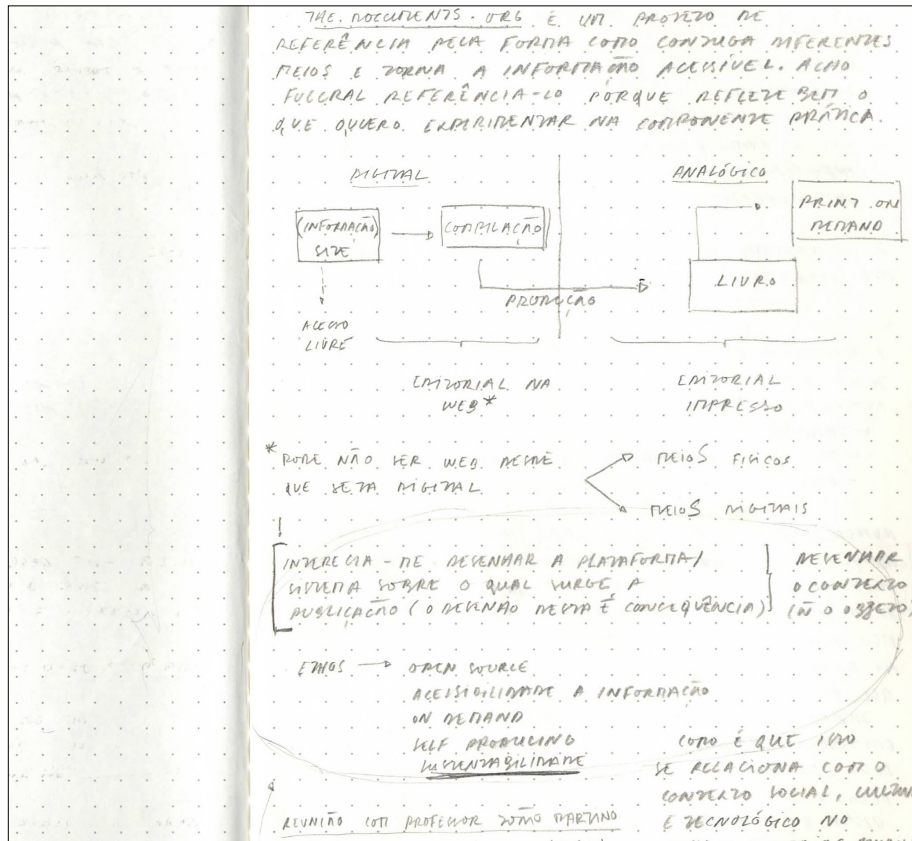 THE.DOCUMENTS.ORG É UM PROJETO DE
REFERÊNCIA PELA FORMA COMO CONJUGA DIFERENTES
MEIOS E TORNA A INFORMAÇÃO ACESSÍVEL. ACHO
FULCRAL REFERÊNCIA-LO PORQUE REFLETE BEM O
QUE QUERO EXPERIMENTAR NA COMPONENTE PRÁTICA.
DIGITAL
ANALÓGICO
(INFORMAÇÃO)
SITE
COMPILAÇÃO
PRINT ON
DEMAND
LIVRO
PRODUÇÃO
ACESSO
LIVRE
EDITORIAL NA
WEB*
EDITORIAL
IMPRESSO
* PODE NÃO SER WEB DESDE
QUE SEJA DIGITAL
MEIOS FISICOS
MEIOS DIGITAIS
INTERECIA-ME DESENHAR A PLATAFORMA/
SISTEMA SOBRE O QUAL SURGE A
PUBLICAÇÃO (O DESENHO DESTA É CONCEQUÊNCIA)
DESENHAR
O CONTEXTO
(Ñ O OBJETO)
ETHOS → OPEN SOURCE
ACESSIBILIDADE A INFORMAÇÃO
ON DEMAND
SELF PRODUCING
SUSTENTABILIDADE
COMO É QUE ISSO
SE RELACIONA COM O
CONTEXTO SOCIAL,
E TECNOLÓGICO NO
REUNIÃO COM PROFESSOR JOÃO MARTINO